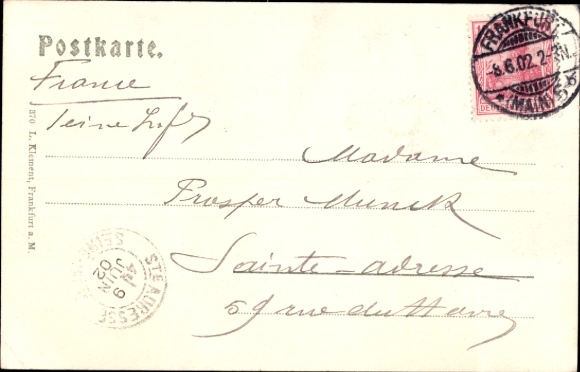 Postkarte.
France
Seine Infre
Madame
Prosper Munck
Sainte-adresse
59 rue du Havre
370 L. Klement, Frankfurt a. M.
FRANKFURT
8.6.02 2-3N.
* (MAIN) 5 *
STE ADRESSE
9
JUIN
02